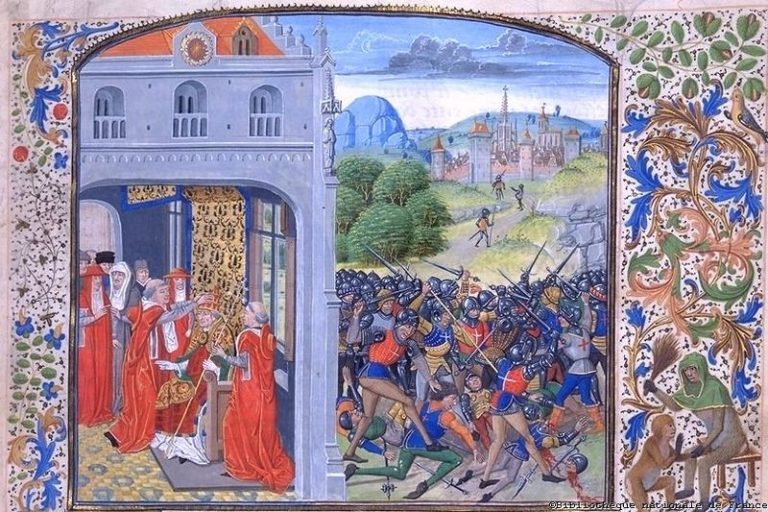 ©Bibliothèque nationale de France